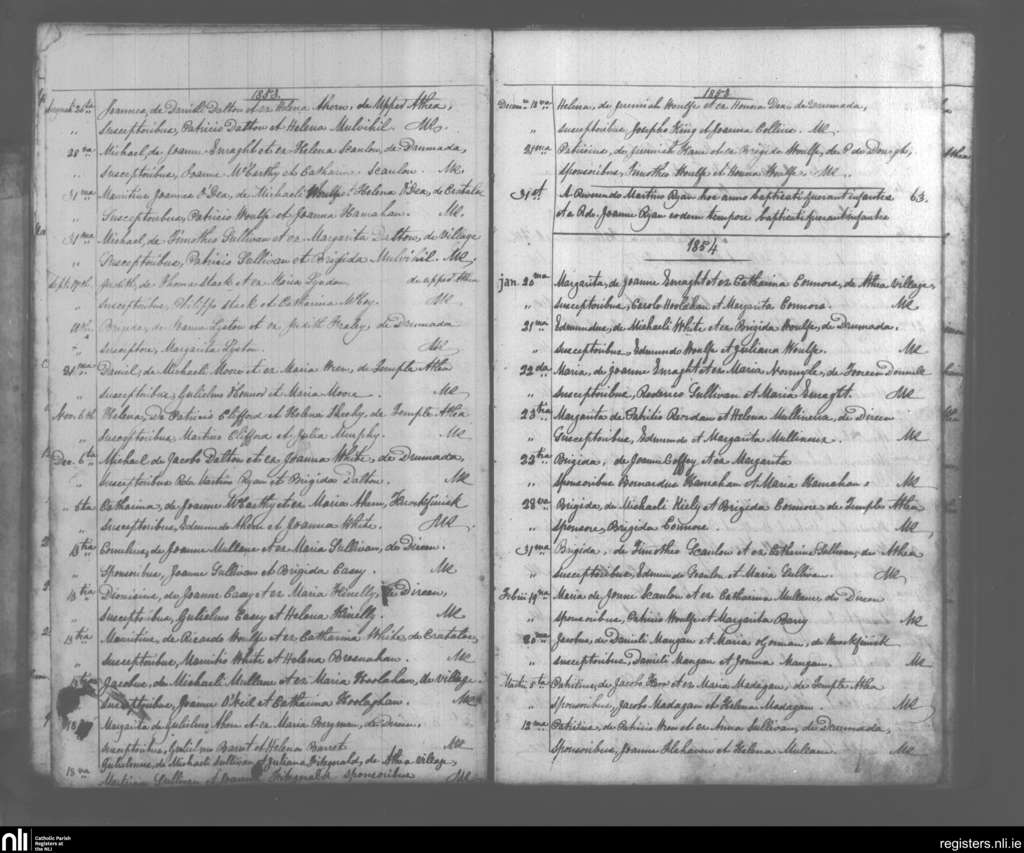 1853.
August 26ta Joannes, de Danieli Dalton et ex Helena Ahern, de Upper Athea,
" Susceptoribus, Patricio Dalton et Helena Mulvihil. MR.
28va Michael, de Joanne Enraght et ex Helena Scanlon, de Drumada,
" Susceptoribus, Joanne McCarthy et Catharina Scanlon. MR.
31ma Joannes O'Dea, de Michaeli Woulfe et Helena O'Dea, de Cratalae
" Susceptoribus, Patricio Woulfe et Joanna Hanrahan. MR.
31ma Michael, de Timotheo Sullivan et ex Margarita Dalton, de Village
" Susceptoribus, Patricio Sullivan et Brigida Mulvihil. MR.
Sept. 17th. Judith, de Thoma Stack et ex Maria Lyddon, de upper Athea
" Susceptoribus, Philippo Stack et Catharina McKoy. MR
Brigida, de Joanne Lyston et ex Judith Healy, de Drumada
" Susceptore, Margarita Lyston. MR
21ma Daniel, de Michaeli Moore et ex Maria Wren, de Temple Athea
" Susceptoribus, Gulielmo Connor et Maria Moore. MR
Nov. 6th Helena, De Patricio Clifford et Helena Sheehy, de Temple Athea
" Susceptoribus, Martino Clifford et Julia Murphy. MR
Dec. 6ta Michael de Jacobo Dalton et ex Joanna White, de Drumada,
" Susceptoribus Rdo. Martino Ryan et Brigida Dalton. MR
" 6ta Catharina, de Joanne McCarthy et ex Maria Ahern, Knockfinisk
" Susceptoribus, Edmundo Ahern et Joanna White. MR
13tia Cornelius, de Joanne Mullane et ex Maria Sullivan, de Direen.
" Sponsoribus, Joanne Sullivan et Brigida Casey. MR
13tia Dionisius, de Joanne Casey et ex Maria Kinelly, de Direen,
" Susceptoribus, Gulielmo Casey et Helena Kinelly. MR
13tia Mauritius, de Ricardo Woulfe et ex Catharina White, de Cratalae,
" Susceptoribus, Mauritio White et Helena Bresnahan. MR
Jacobus, de Michaeli Mullane et ex Maria Hoolahan, de village.
Susceptoribus, Joanne O'Keil et Catharina Hoolaghan. MR
Margarita de Gulielmo Ahern et ex Maria Bregman, de Direen,
susceptoribus, Gulielmo Barret et Helena Barret. MR
18va Gulielmus, de Michaeli Sullivan et Juliana Fitzgerald, de Athea Village,
Sullivan et Fitzgerald, sponsoribus MR
1853
Decem. 18va Helena, de Jeremiah Woulfe et ex Honora Dea, de Drumada,
" Susceptoribus, Josepho King et Joanna Collins. MR.
21ma Patricius, de Jeremiah Ham et ex Brigida Woulfe, de
" Sponsoribus, Timotheo Woulfe et Honora Woulfe. MR.
31st A Reverendo Martino Ryan hoc anno baptizati fuerunt infantes 63.
et a Rdo. Joanne Ryan eodem tempore baptizati fuerunt infantes
1854
Jan. 20ma Margarita, de Joanne Enraght et ex Catharina Connors, de Athea Village,
" susceptoribus, Carolo Hoolahan et Margarita Connors. MR
21ma Edmundus, de Michaeli White et ex Brigida Woulfe, de Drumada.
" susceptoribus, Edmundo Woulfe et Juliana Woulfe. MR
22da Maria, de Joanne Enraght et ex Maria Normyle, de
" susceptoribus, Roderico Sullivan et Maria Enraght. MR
23tia Margarita de Patritio Riordan et Helena Mullineux, de Direen
" Susceptoribus, Edmundo et Margarita Mullineux. MR
23tia Brigida, de Joanne Coffey et ex Margarita
" Sponsoribus Bernardus Hanrahan et Maria Hanrahan. MR
28va Brigida, de Michaeli Kiely et Brigida Connors, de Temple Athea
" Sponsore, Brigida Connors. MR
31ma Brigida, de Timotheo Scanlon et ex Catharina Sullivan, de Athea
" susceptoribus, Edmundo Scanlon et Maria Sullivan. MR
Febrii 19na Maria de Joanne Scanlon et ex Catharina Mullane, de Direen
" sponsoribus, Patricio Woulfe et Margarita Barry MR
20ma Jacobus, de Danieli Mangan et Maria OGorman, de Knockfinisk
" susceptoribus, Danieli Mangan et Joanna Mangan. MR
Martii 5ta Patritius, de Jacobo Hern et ex Maria Madagan, de Temple Athea
" sponsoribus, Jacobo Madagan et Helena Madagan. MR
12ma Patritius, de Patricio Wren et ex Anna Sullivan, de Drumada,
sponsoribus, Joanne et Helena Mullane MR
nli
Catholic Parish
Registers at
the NLI
registers.nli.ie